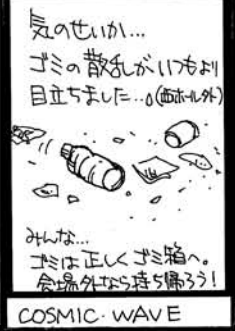 気のせいか…
ゴミの散乱がいつもより
目立ちました…。(西ホール外)
みんな…
ゴミは正しくゴミ箱へ。
会場外なら持ち帰ろう!
COSMIC・WAVE